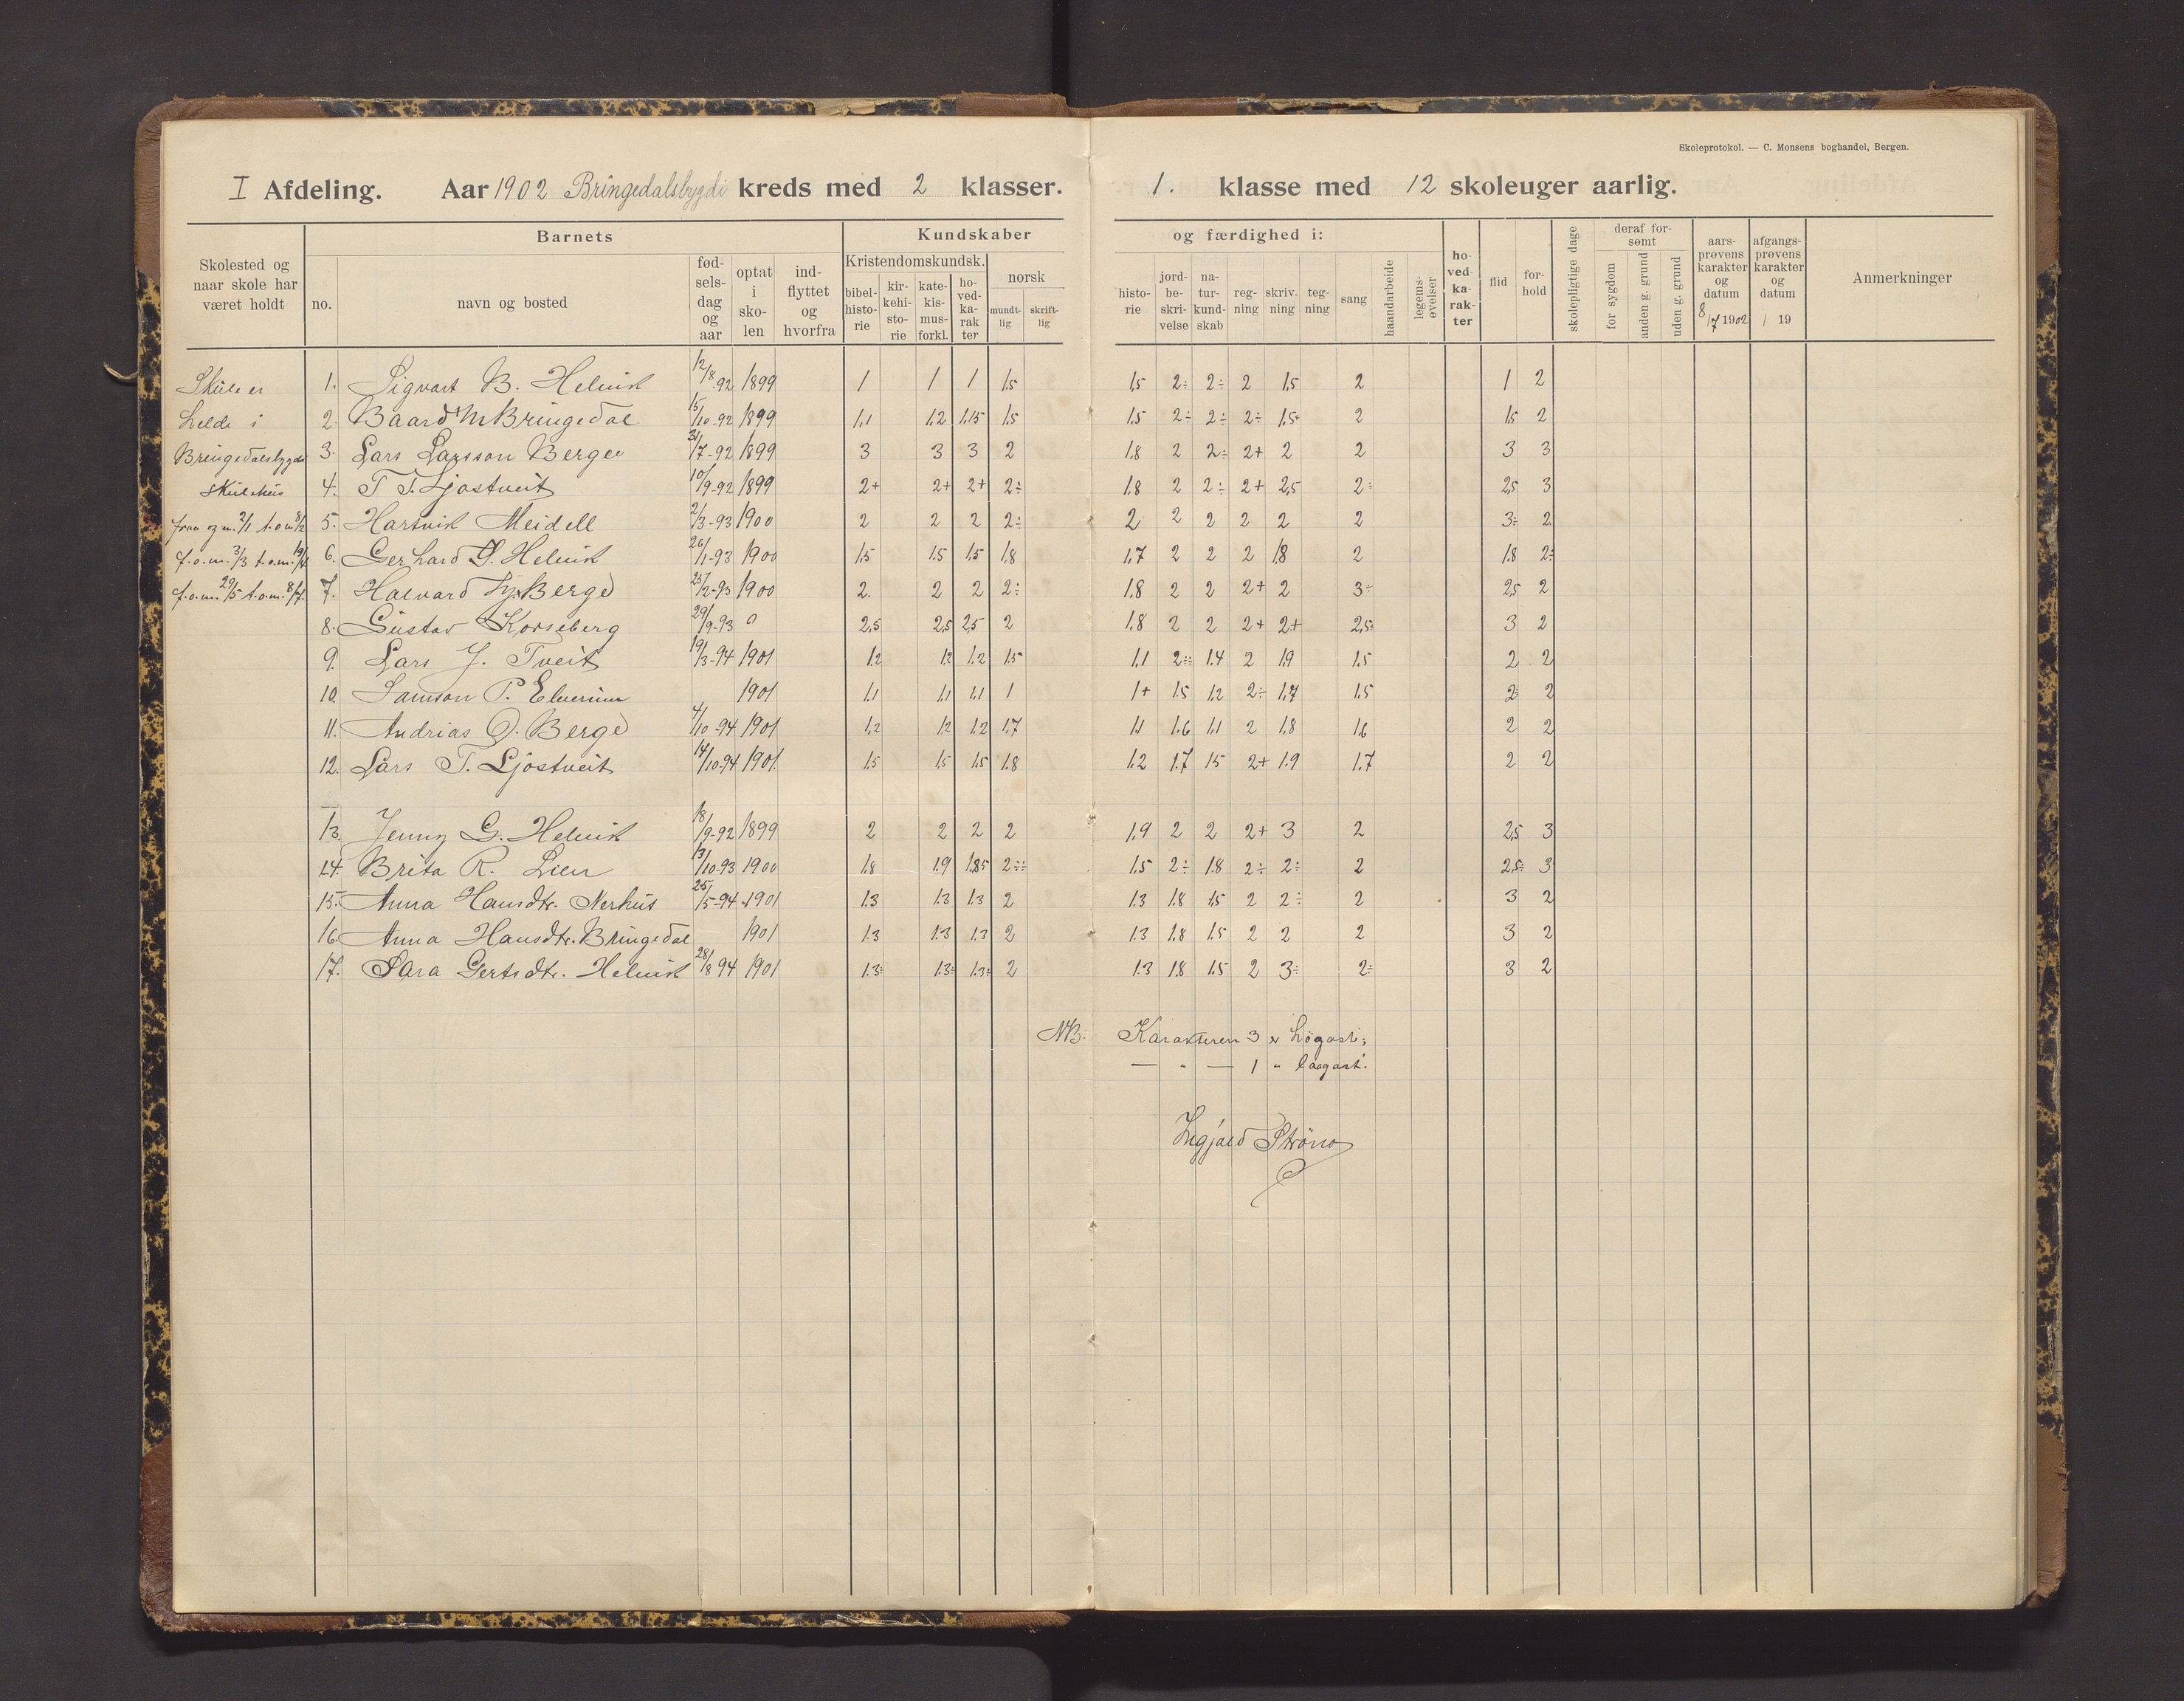 Skoleprotokol. — C. Monsens boghandel, Bergen.
I Afdeling. Aar 1902 Bringedalsbygdi kreds med 2 klasser. 1. klasse med 12 skoleuger aarlig.
Skolested og naar skole har været holdt
Barnets
no. navn og bosted fødselsdag og aar optat i skolen indflyttet og hvorfra
Kundskaber og færdighed i:
Kristendomskundsk. norsk
bibelhistorie kirkehistorie katekismusforkl. hovedkarakter mundtlig skriftlig
historie jordbeskrivelse naturkundskab regning skrivning tegning sang haandarbeide legemsøvelser
hovedkarakter flid forhold skolepligtige dage
deraf forsømt
for sygdom anden g. grund uden g. grund
aarsprøvens karakter og datum 8/7 1902
afgangsprøvens karakter og datum / 19
Anmerkninger
Skule er 1. Sigvart B. Helvik 12/8-92 1899 1 1 1 1.5 1,5 2÷ 2÷ 2 1,5 2 1 2
helde i 2. Baard M Bringedal 15/10-92 1899 1,1 1.2 1.15 1.5 1.5 2÷ 2÷ 2÷ 1.5+ 2 1.5 2
Bringedalsbygdi 3. Lars Larsson Berge 31/7-92 1899 3 3 3 2 1.8 2 2÷ 2+ 2 2 3 3
skulehus 4. T T. Ljostveit 10/9-92 1899 2+ 2+ 2+ 2÷ 1.8 2 2÷ 2+ 2,5 2÷ 2,5 3
fraa og m. 2/1 t.o.m 8/2 5. Hartvik Meidell 2/3-93 1900 2 2 2 2÷ 2 2 2 2 2 2 3÷ 2
f.o.m. 3/3 t.o.m. 19/4 6. Gerhard S. Helvik 26/1-93 1900 1.5 1.5 1.5 1.8 1,7 2 2 2 1.8 2 1.8 2÷
f.o.m. 29/5 t.o.m. 8/7. 7. Halvard Berge 25/2-93 1900 2. 2 2 2÷ 1.8 2 2 2+ 2 3÷ 2,5 2
8. Gustav Korsberg 29/9-93 0 2,5 2,5 2,5 2 1.8 2 2 2+ 2+ 2,5÷ 3 2
9. Lars J. Tveit 19/3-94 1901 1.2 1.2 1.2 1.5 1.1 2÷÷ 1.4 2 1.9 1.5 2 2
10. Samson P. 1901 1.1 1.1 1.1 1 1+ 1.5 1.2 2÷ 1.7 1.5 2 2
11. Andrias O. Berge 4/10-94 1901 1.2 1.2 1.2 1.7 1.1 1.6 1.1 2 1.8 1.6 2 2
12. Lars T. Ljostveit 14/10-94 1901. 1.5 1.5 1.5 1.8 1.2 1.7 1.5 2+ 1.9 1.7 2 2
13. Jenny G. Helvik 18/9-92 1899 2 2 2 2 1,9 2 2 2+ 3 2 2,5 3
14. Brita R. Lien 13/10-93 1900 1.8 1.9 1.85 2÷÷ 1.5 2÷ 1.8 2÷ 2÷ 2 2,5÷ 3
15. Anna Hansdtr. Nerhus 25/5-94 1901 1.3 1.3 1.3 2 1.3 1.8 1,5 2 2÷ 2 3 2
16. Anna Hansdtr. Bringedal 1901 1.3 1.3 1.3 2 1.3 1.8 1.5 2 2 2 3 2
17. Sara Gertsdtr. Helvik 28/8 94 1901 1.3÷ 1.3÷ 1.3÷ 2 1.3 1.8 1.5 2 3÷ 2÷ 3 2
NB: Karakteren 3 er högast;
— " — 1 " laagast.
Ingjald Strönö